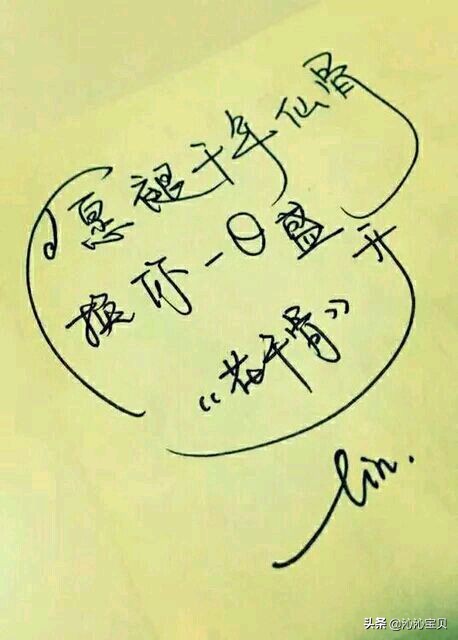 愿褪千年仙骨
换你一日盛开
《花千骨》
lin.
头条 @沁沁宝贝